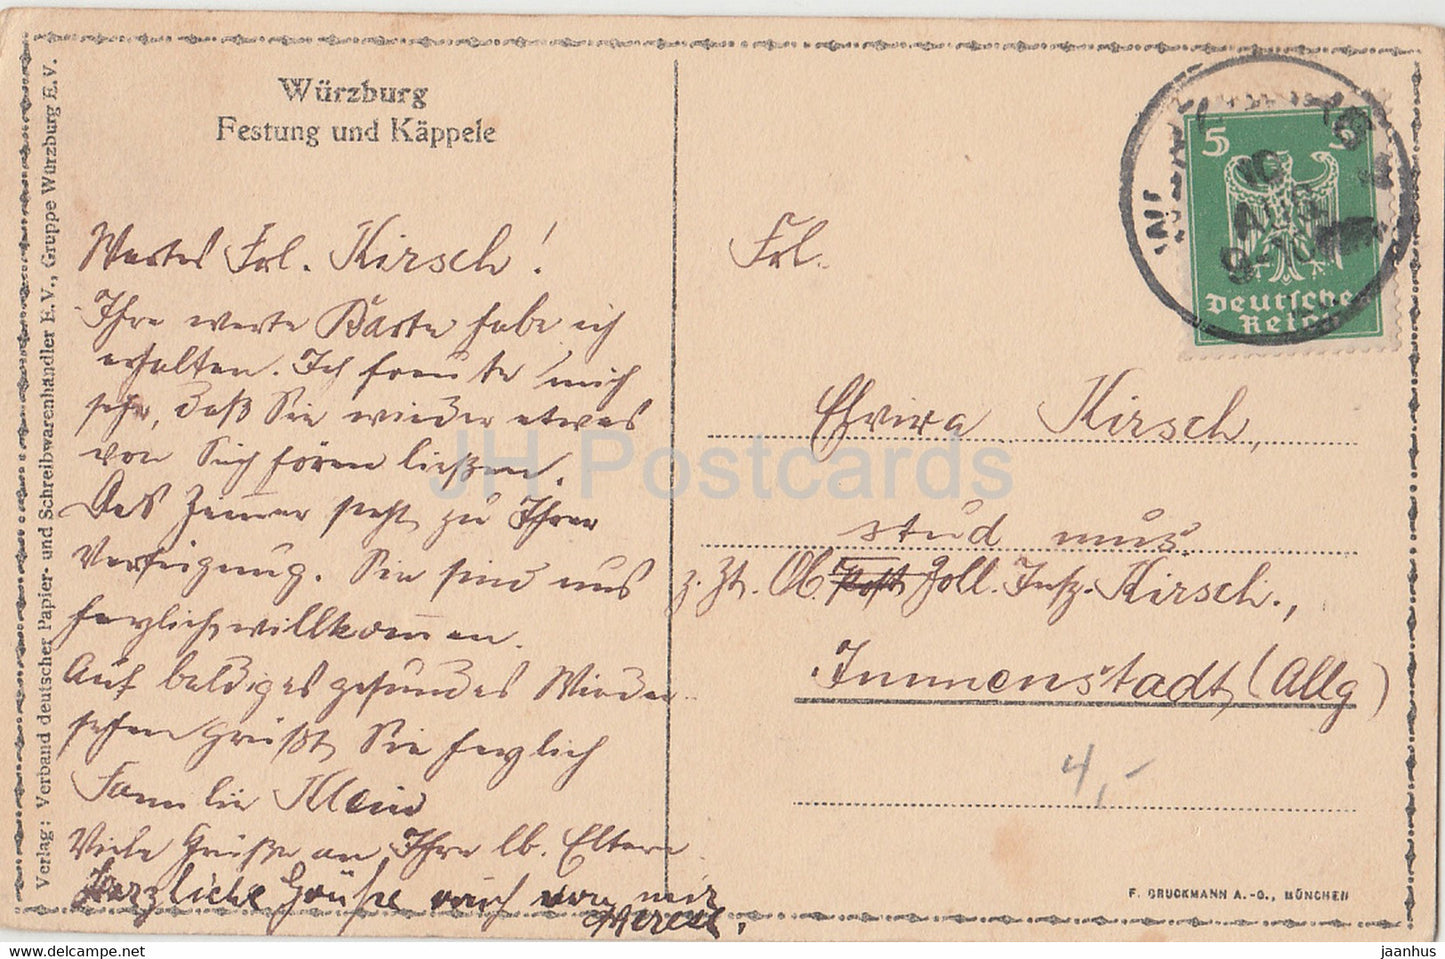 Würzburg
Festung und Käppele
Wertes Frl. Kirsch!
Ihre werte Karte habe ich
erhalten. Ich freute mich
sehr, daß Sie wieder etwas
von Sich hören ließen.
Das Zimmer steht zu Ihrer
Verfügung. Sie sind uns
herzlich willkommen.
Auf baldiges gesundes Wieder-
sehen grüßt Sie herzlich
Familie Klein
Viele Grüße an Ihre lb. Eltern.
Herzliche Grüße auch von mir
Verlag: Verband deutscher Papier- und Schreibwarenhändler E.V., Gruppe Würzburg E.V.
5 5
Deutsches
Reich
10
AUG
9-10
Frl.
Elvira Kirsch,
stud mus.
z. Zt. Ob. Post Zoll. Insp. Kirsch.,
Immenstadt (Allg)
4,-
F. BRUCKMANN A.-G., MÜNCHEN
JH Postcards
www.jhpostcards.com
jaanhus